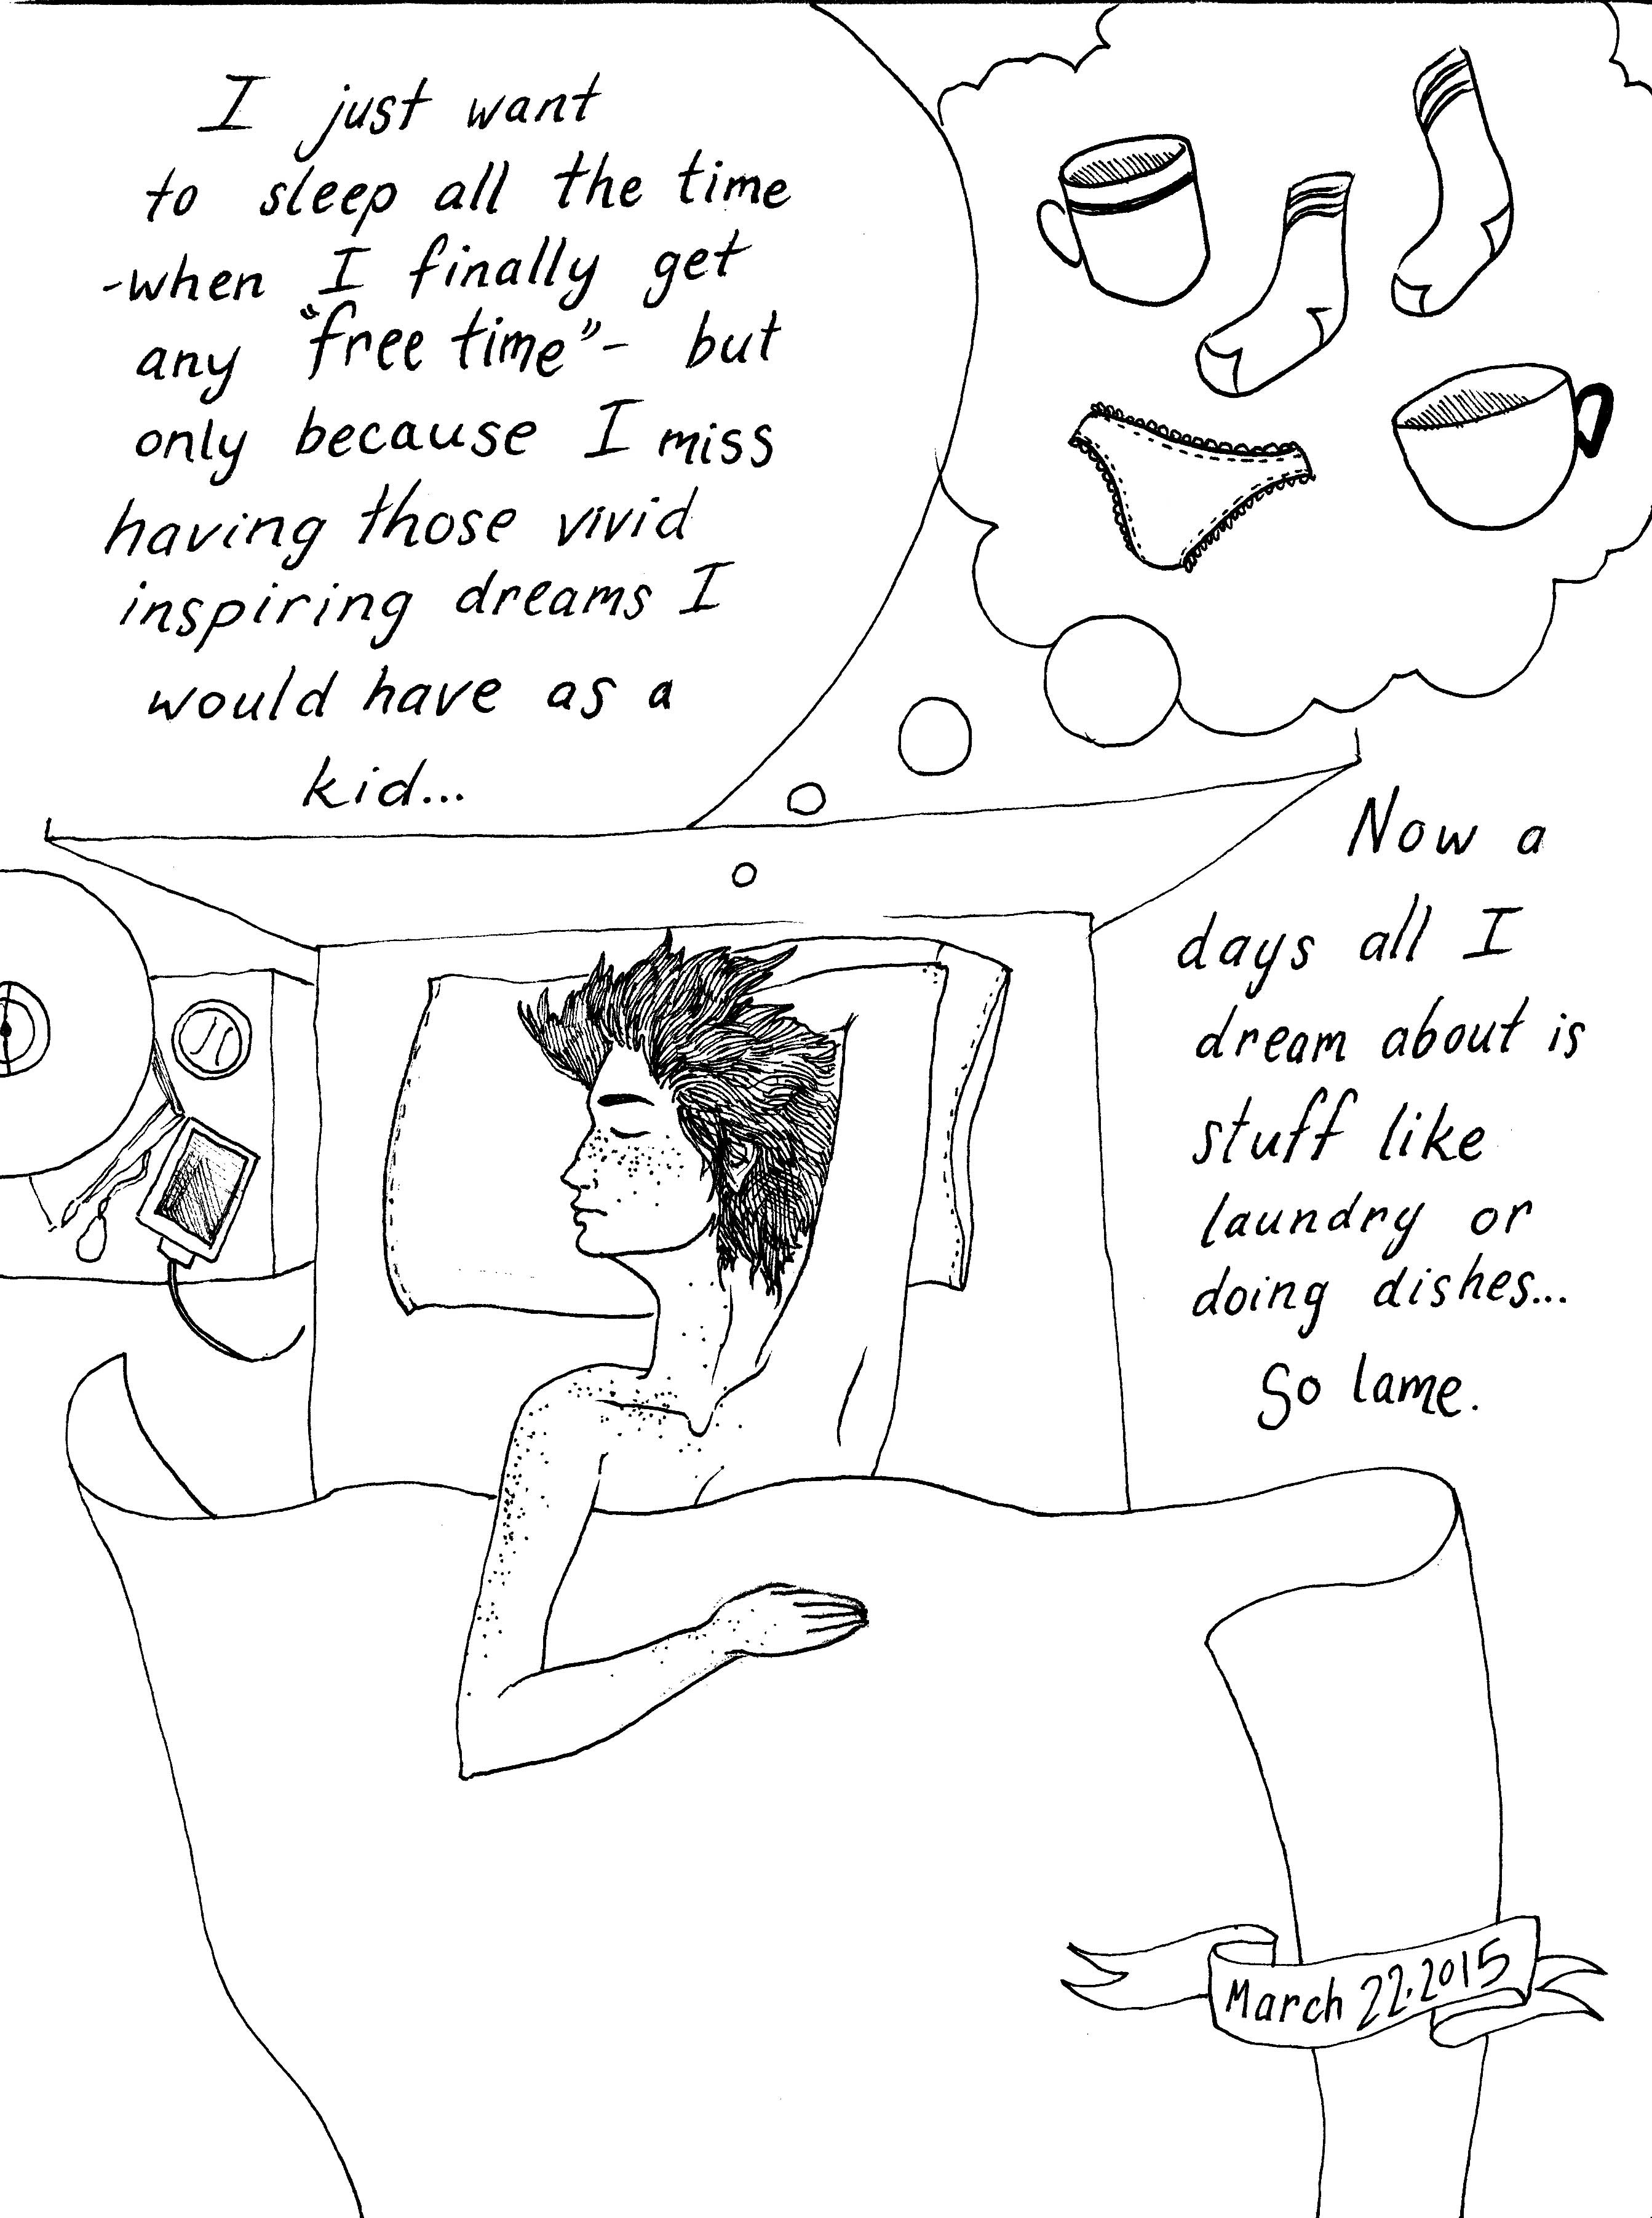 I just want
to sleep all the time
-when I finally get
any "free time"- but
only because I miss
having those vivid
inspiring dreams I
would have as a
kid...
Now a
days all I
dream about is
stuff like
laundry or
doing dishes...
So lame.
March 22.2015